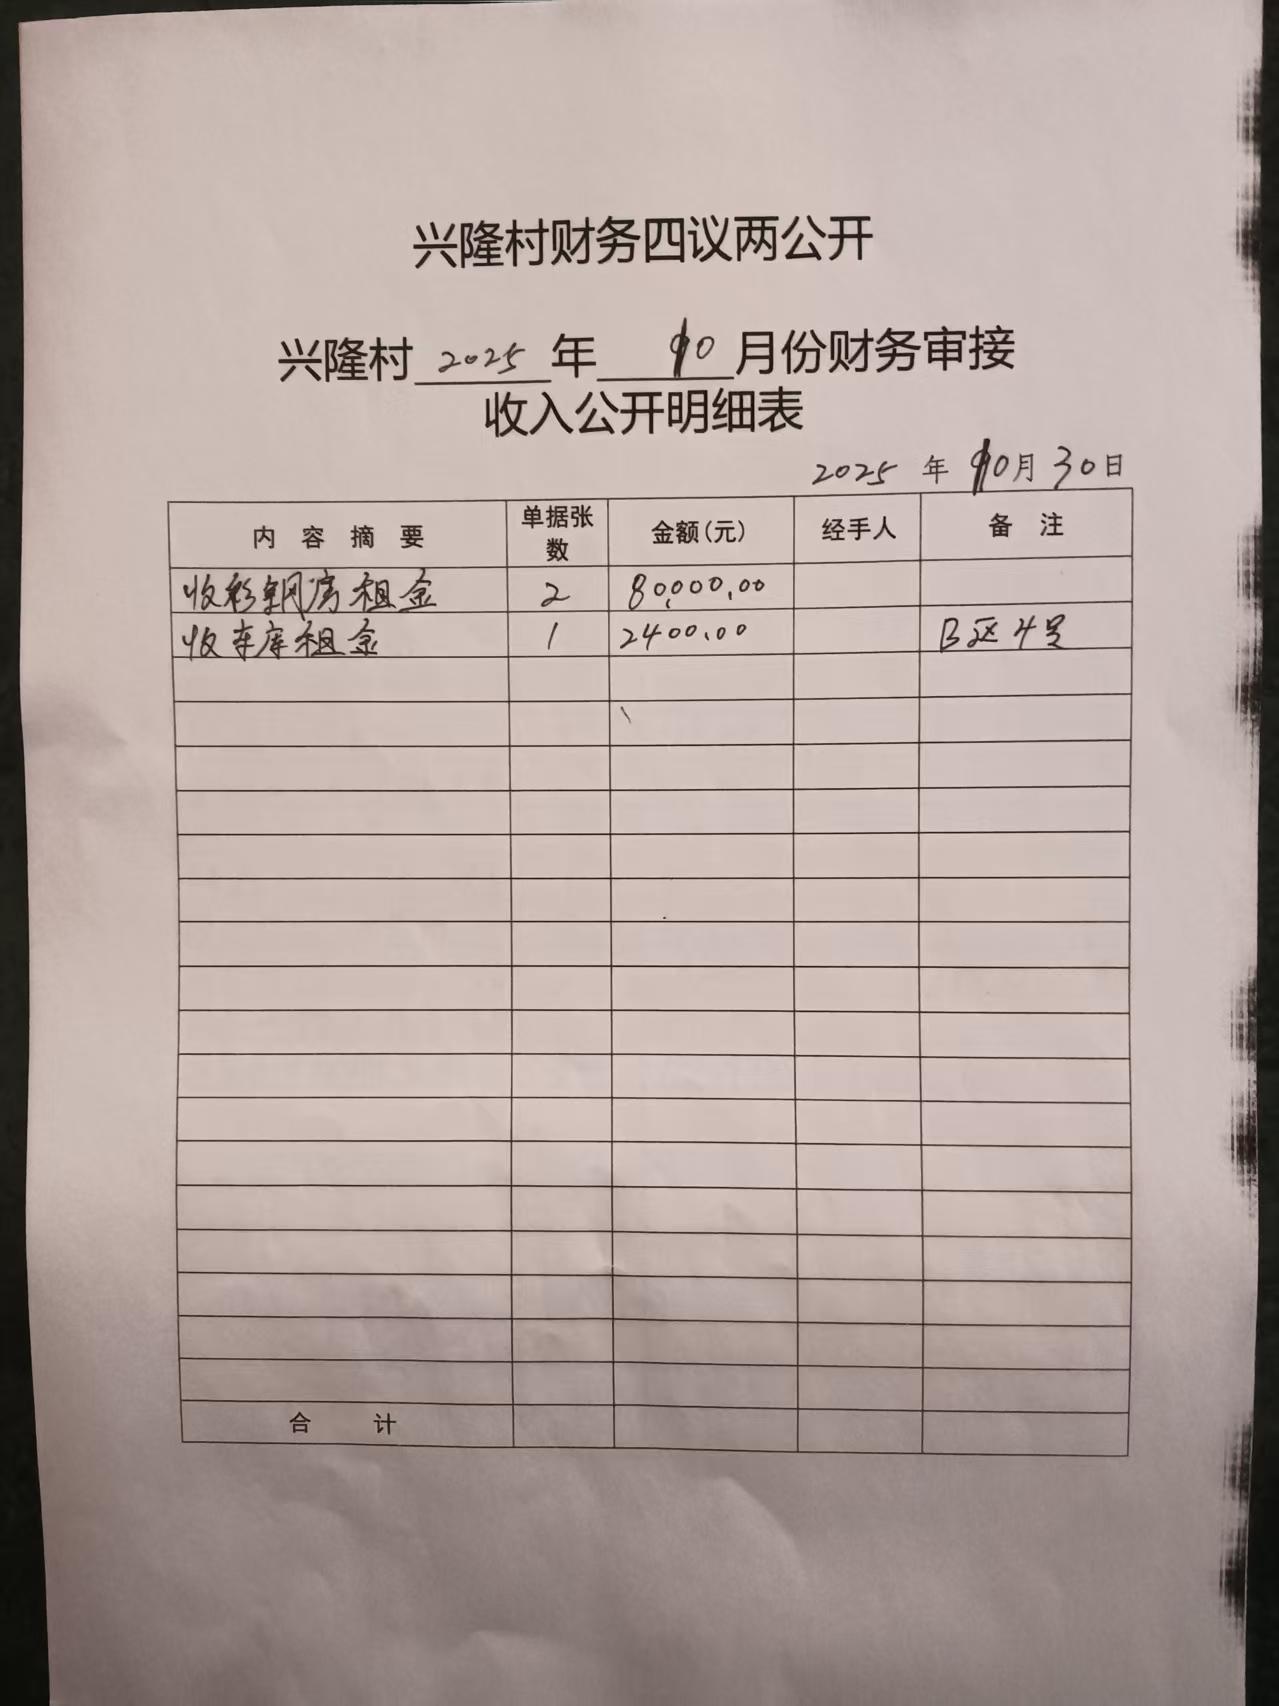 兴隆村财务四议两公开
兴隆村 2025 年 10 月份财务审接
收入公开明细表
2025 年 10月 30日
内 容 摘 要 单据张数 金额(元) 经手人 备 注
收彩钢房租金 2 80,000.00
收车库租金 1 2400.00 B区4号
合 计